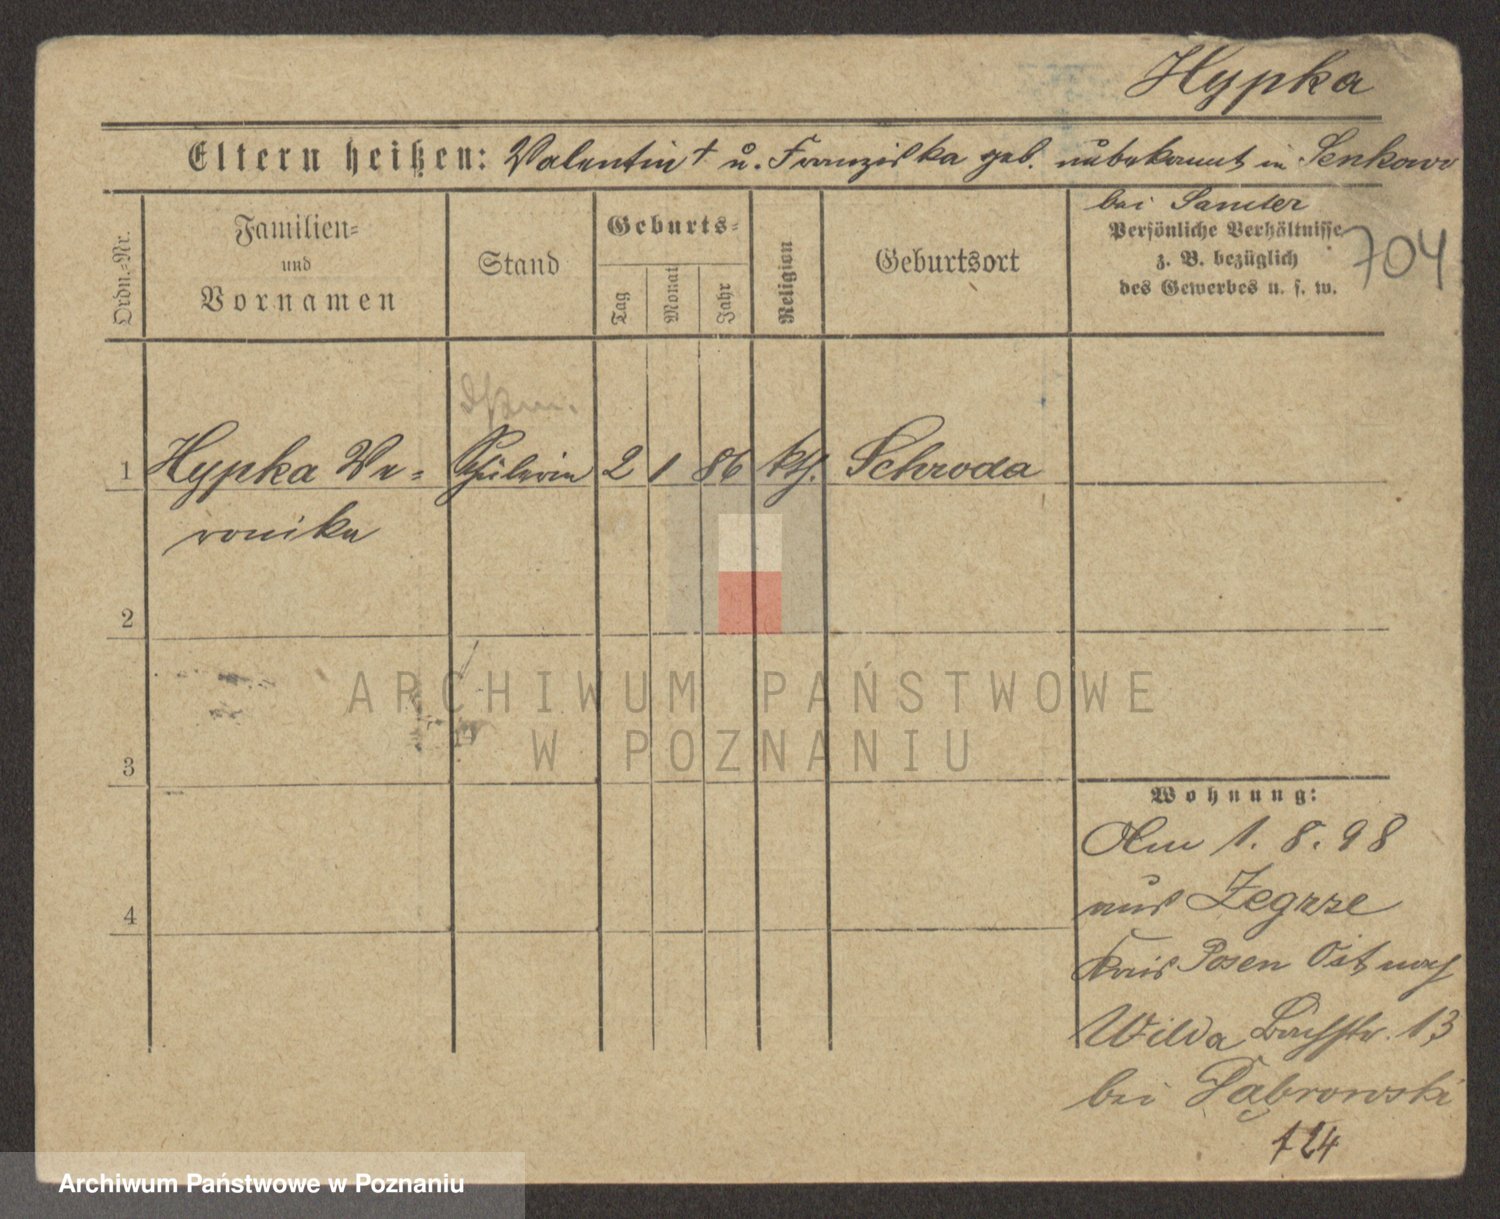 Hypka
Eltern heißen: Valentin † u. Franziska geb. unbekannt in Senkowo
bei Samter
Ordn.=Nr.
Familien=
und
Vornamen
Stand
Geburts=
Tag
Monat
Jahr
Religion
Geburtsort
Persönliche Verhältnisse
z. B. bezüglich
des Gewerbes u. s. w.
704
1 Hypka Ve= Schülerin 2 1 86 kth. Schroda
ronika
2
3
4
ARCHIWUM PAŃSTWOWE
W POZNANIU
Wohnung:
Am 1. 8. 98
aus Zegrze
Kreis Posen Ost nach
Wilda Bachstr. 13
bei Dąbrowski
124
Archiwum Państwowe w Poznaniu